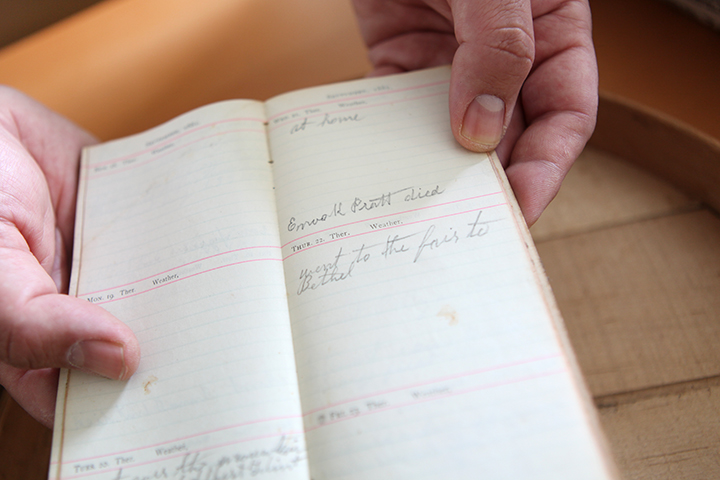 SEPTEMBER,
SUN. 18. Ther. Weather.
MON. 19 Ther. Weather.
TUES. 20. Ther. Weather.
over the
SEPTEMBER,
WED. 21 Ther. Weather.
at home
Enook Pratt died
THUR. 22. Ther. Weather.
went to the fair to
Bethel
FRI. 23 Ther. Weather.